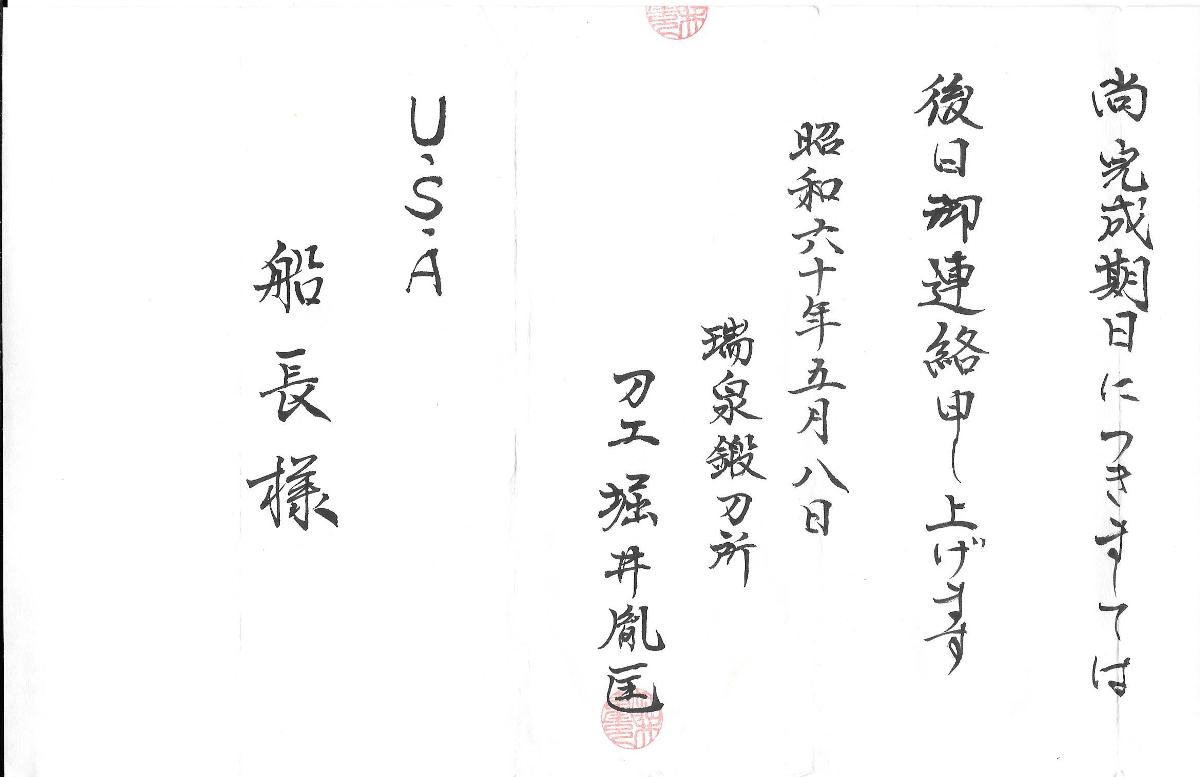 尚完成期日につきましては
後日御連絡申し上げます
昭和六十年五月八日
瑞泉鍛刀所
刀工堀井胤匡
U.S.A
船長様